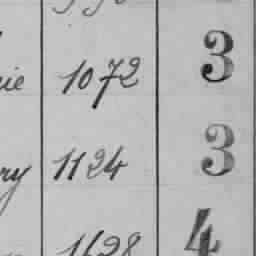 ie 1072 3
ry 1124 3
1628 4